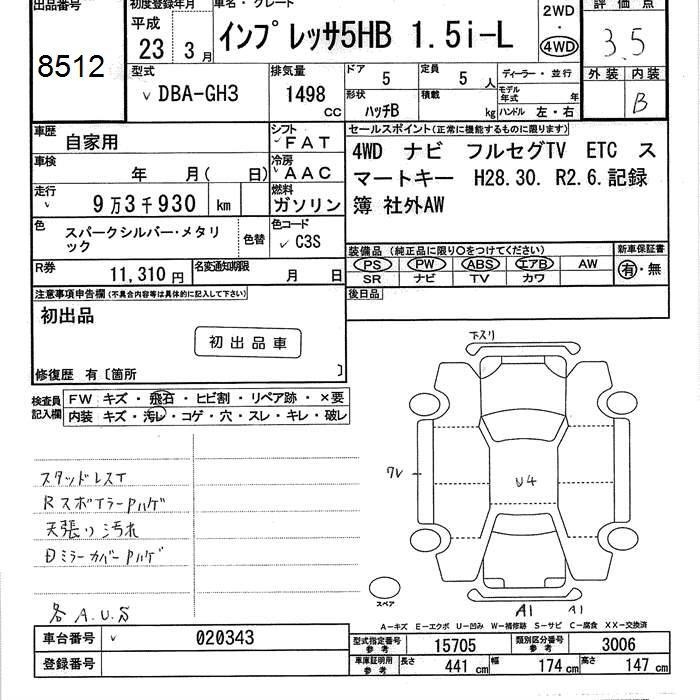 出品番号
8512
初度登録年月
平成
23 3月
車名・グレード
インプレッサ5HB 1.5i-L
2WD
・
4WD
評価点
3.5
外装 内装
B
型式
DBA-GH3
排気量
1498
CC
ドア
5
定員
5人
形状
ハッチB
積載
kg
ディーラー・並行
モデル年式 年
ハンドル 左・右
車歴
自家用
シフト
FAT
車検
年 月( 日)
冷房
AAC
走行
9万3千930 km
燃料
ガソリン
色
スパークシルバー・メタリ
ック
色替
色コード
C3S
R券
11,310円
名変通知期限
月 日
セールスポイント(正常に機能するものに限ります)
4WD ナビ フルセグTV ETC ス
マートキー H28.30. R2.6.記録
簿 社外AW
装備品(純正品に限り○をつけてください)
PS PW ABS エアB AW
SR ナビ TV カワ
新車保証書
有・無
後日品
注意事項申告欄(不具合内容等は具体的に記入して下さい)
初出品
初出品車
修復歴 有〔箇所 〕
検査員
記入欄
FW キズ・飛石・ヒビ割・リペア跡・×要
内装 キズ・汚レ・コゲ・穴・スレ・キレ・破レ
スタッドレスT
RスポイラーPハゲ
天張り汚れ
DミラーカバーPハゲ
各A.U.S
下スリ
ワレ
U4
スペア
A1
A1
A-キズ E-エクボ U-凹み W-補修跡 S-サビ C-腐食 XX-交換済
車台番号
020343
登録番号
型式指定番号
参考
15705
類別区分番号
参考
3006
車庫証明用
参考
長さ 441cm
幅 174cm
高さ 147cm